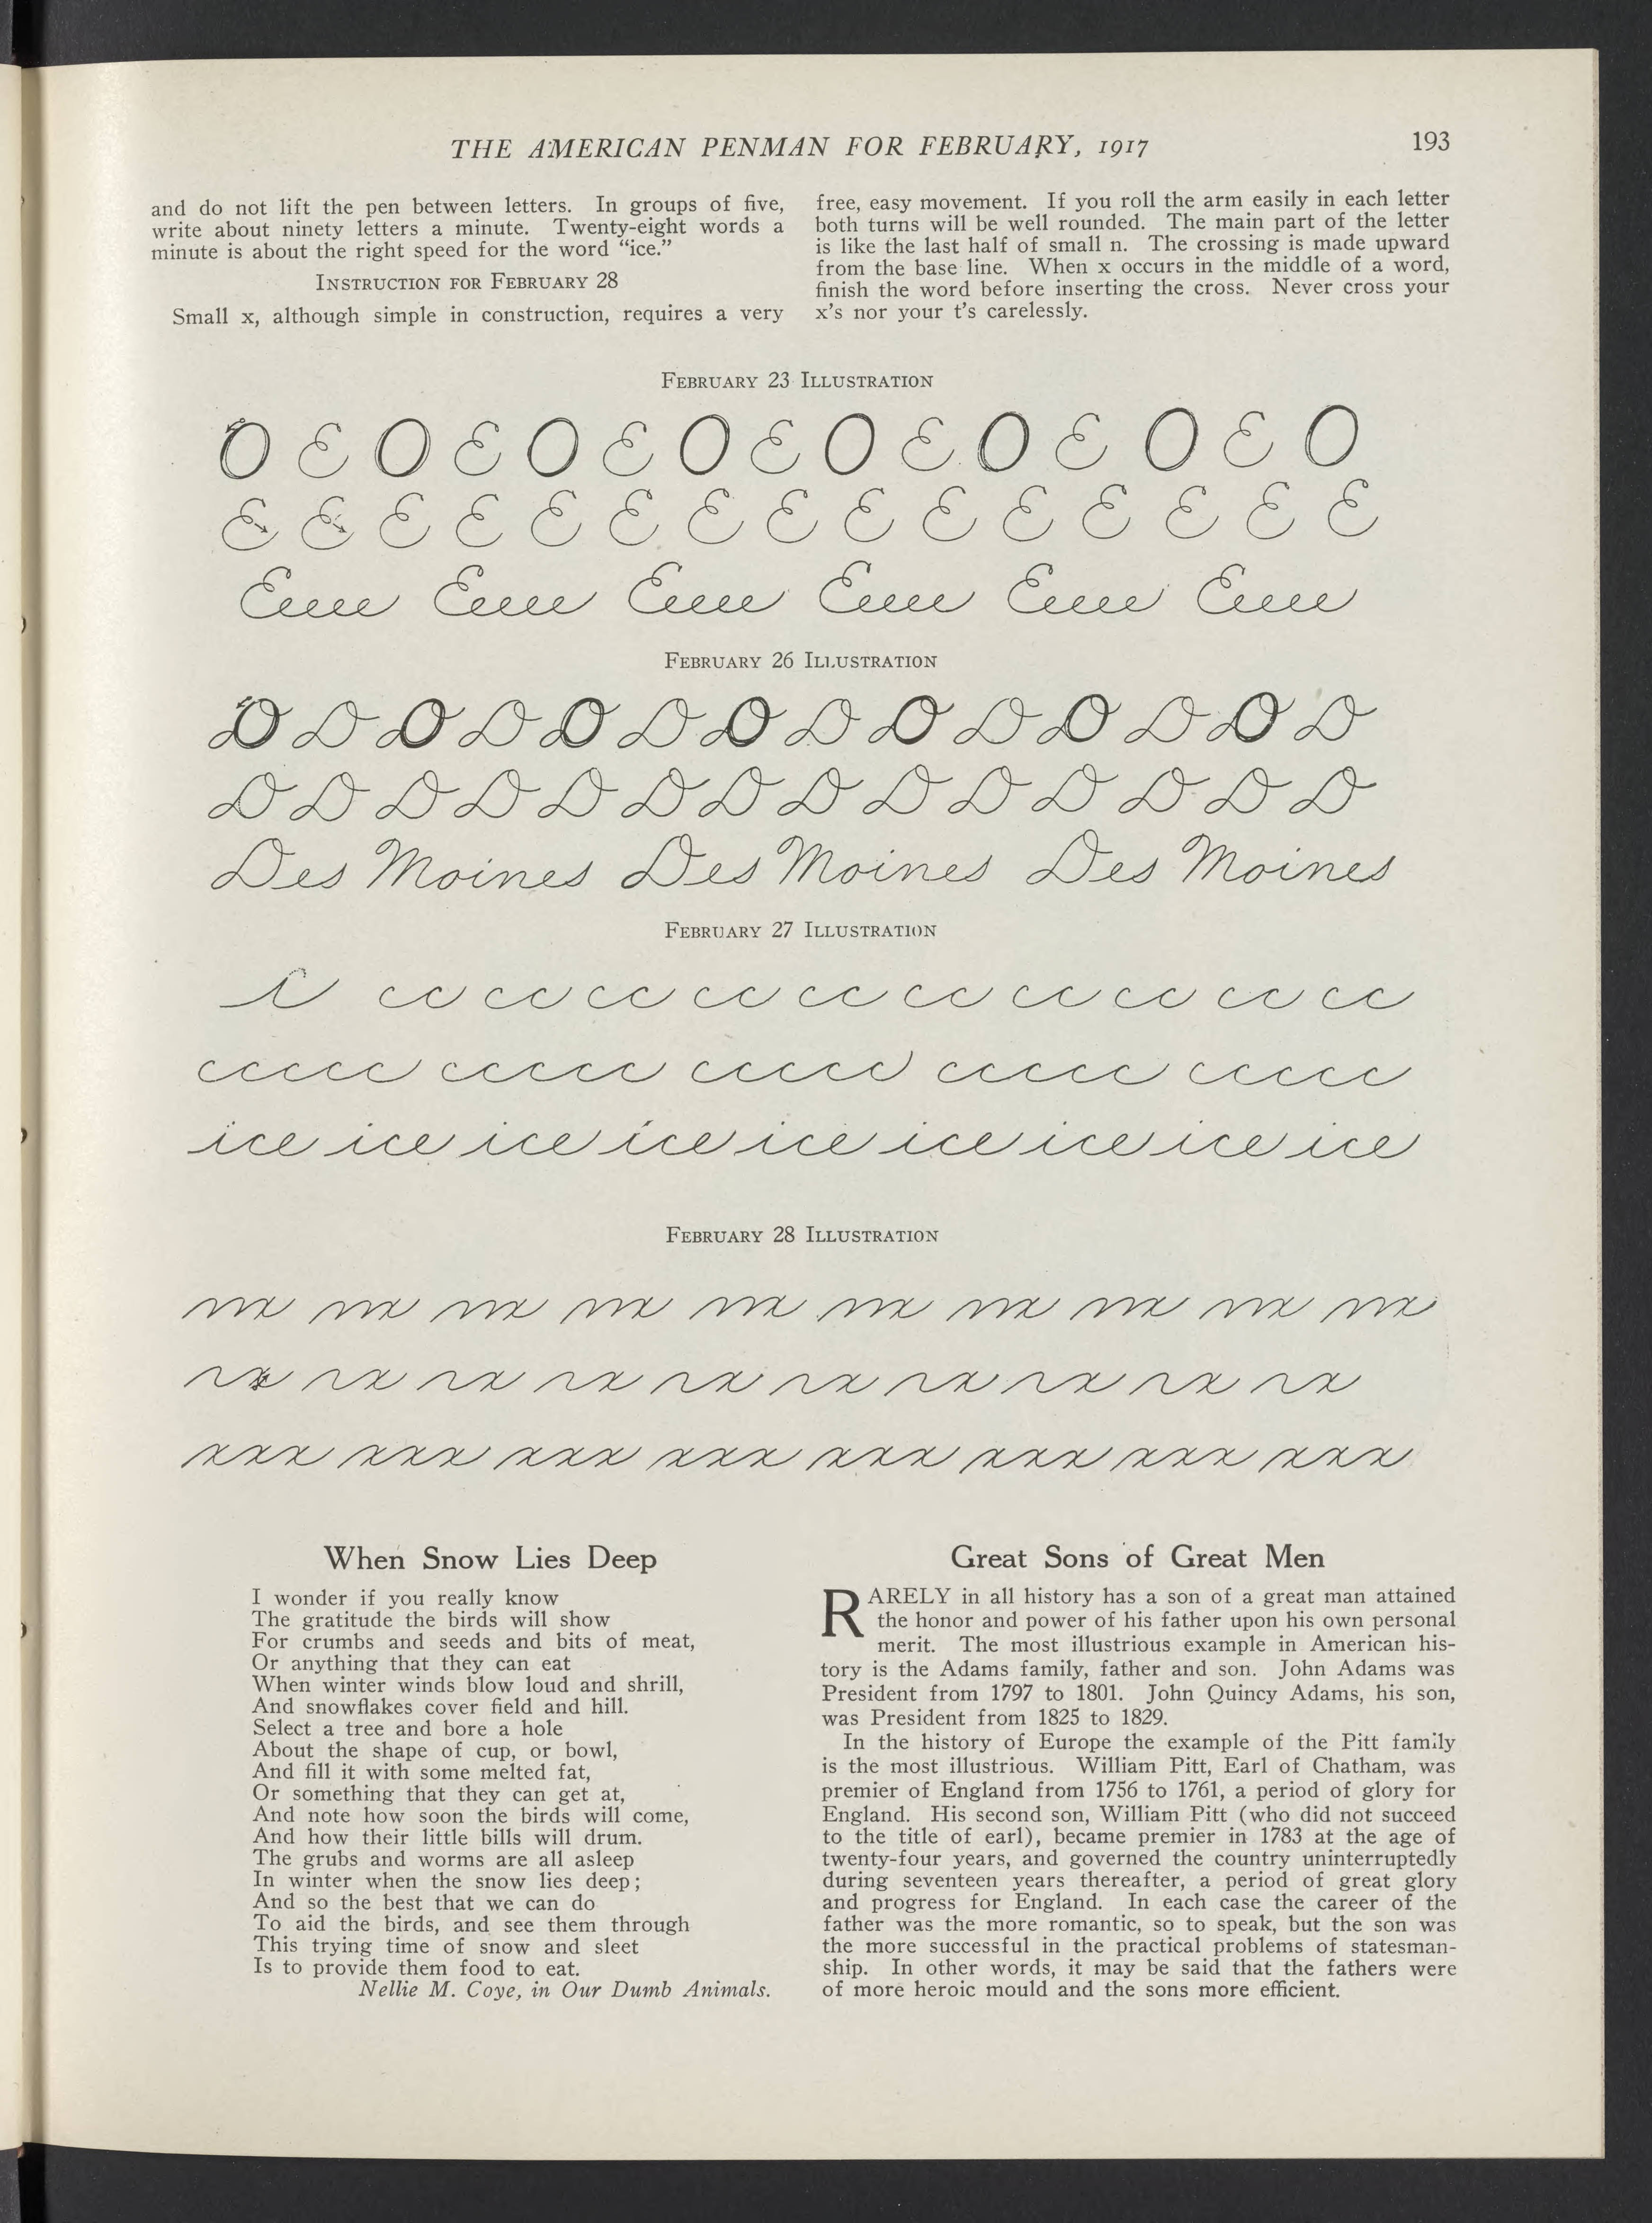 THE AMERICAN PENMAN FOR FEBRUARY, 1917
193
and do not lift the pen between letters. In groups of five,
write about ninety letters a minute. Twenty-eight words a
minute is about the right speed for the word "ice."
INSTRUCTION FOR FEBRUARY 28
Small x, although simple in construction, requires a very
free, easy movement. If you roll the arm easily in each letter
both turns will be well rounded. The main part of the letter
is like the last half of small n. The crossing is made upward
from the base line. When x occurs in the middle of a word,
finish the word before inserting the cross. Never cross your
x's nor your t's carelessly.
FEBRUARY 23 ILLUSTRATION
O E O E O E O E O E O E O E O
E E E E E E E E E E E E E E E
Eeeee Eeeee Eeeee Eeeee Eeeee Eeeee
FEBRUARY 26 ILLUSTRATION
D D D D D D D D D D D D D D
D D D D D D D D D D D D D D
Des Moines Des Moines Des Moines
FEBRUARY 27 ILLUSTRATION
c cc cc cc cc cc cc cc cc cc cc
ccccc ccccc ccccc ccccc ccccc
ice ice ice ice ice ice ice ice ice
FEBRUARY 28 ILLUSTRATION
nx nx nx nx nx nx nx nx nx nx
x x x x x x x x x x
xxx xxx xxx xxx xxx xxx xxx xxx
When Snow Lies Deep
I wonder if you really know
The gratitude the birds will show
For crumbs and seeds and bits of meat,
Or anything that they can eat
When winter winds blow loud and shrill,
And snowflakes cover field and hill.
Select a tree and bore a hole
About the shape of cup, or bowl,
And fill it with some melted fat,
Or something that they can get at,
And note how soon the birds will come,
And how their little bills will drum.
The grubs and worms are all asleep
In winter when the snow lies deep;
And so the best that we can do
To aid the birds, and see them through
This trying time of snow and sleet
Is to provide them food to eat.
Nellie M. Coye, in Our Dumb Animals.
Great Sons of Great Men
RARELY in all history has a son of a great man attained
the honor and power of his father upon his own personal
merit. The most illustrious example in American his-
tory is the Adams family, father and son. John Adams was
President from 1797 to 1801. John Quincy Adams, his son,
was President from 1825 to 1829.
In the history of Europe the example of the Pitt family
is the most illustrious. William Pitt, Earl of Chatham, was
premier of England from 1756 to 1761, a period of glory for
England. His second son, William Pitt (who did not succeed
to the title of earl), became premier in 1783 at the age of
twenty-four years, and governed the country uninterruptedly
during seventeen years thereafter, a period of great glory
and progress for England. In each case the career of the
father was the more romantic, so to speak, but the son was
the more successful in the practical problems of statesman-
ship. In other words, it may be said that the fathers were
of more heroic mould and the sons more efficient.